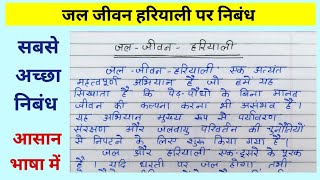 जल जीवन हरियाली पर निबंध
सबसे
अच्छा
निबंध
आसान
भाषा में
जल-जीवन-हरियाली
जल-जीवन-हरियाली एक अत्यंत
महत्वपूर्ण अभियान है जो हमें यह
सिखाता है कि पेड़-पौधों के बिना मानव
जीवन की कल्पना करना भी असंभव है।
यह अभियान मुख्य रूप से पर्यावरण
संरक्षण और जलवायु परिवर्तन की चुनौतियों
से निपटने के लिए शुरू किया गया है।
जल और हरियाली एक-दूसरे के पूरक
है। यदि धरती पर जल होगा तभी